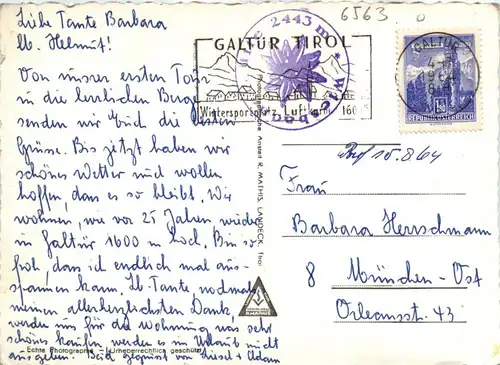 Liebe Tante Barbara
lb. Helmut!
Von unserer ersten Tour
in die herrlichen Berge
senden wir Euch die besten
Grüsse. Bis jetzt haben wir
schönes Wetter und wollen
hoffen, dass es so bleibt. Wir
wohnen, wie vor 25 Jahren wieder
in Galtür 1600 m hoch. Bin so
froh, dass ich endlich mal aus-
spannen kann. Lb. Tante, nochmals
meinen allerherzlichsten Dank,
werde uns für die Wohnung was sehr
schönes kaufen werde es im Urlaub nicht
ausgeben. Seid gegrüsst von Liesel + Adam
Echte Photographie - Urheberrechtlich geschützt
6563
2443 m
Wiesbad
GALTÜR TIROL
Wintersportplatz Luftkurort 160
GALTÜR
1964
REPUBLIK ÖSTERREICH
Photographische Anstalt R. MATHIS, LANDECK, Tirol
15.8.64
Frau
Barbara Herrschmann
8 München-Ost
Orleansstr. 43